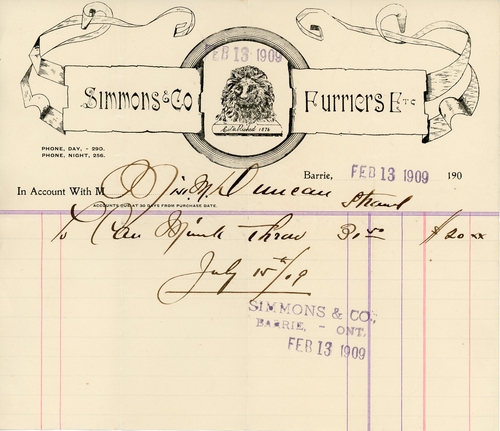 FEB 13 1909
Simmons & Co Furriers Etc
Established 1876
PHONE, DAY, - 290.
PHONE, NIGHT, 256.
Barrie, FEB 13 1909 190
In Account With M Duncan
ACCOUNTS DUE AT 30 DAYS FROM PURCHASE DATE.
To Can Mink Throw $20 xx
July 15th/09
SIMMONS & CO.,
BARRIE, - ONT.
FEB 13 1909